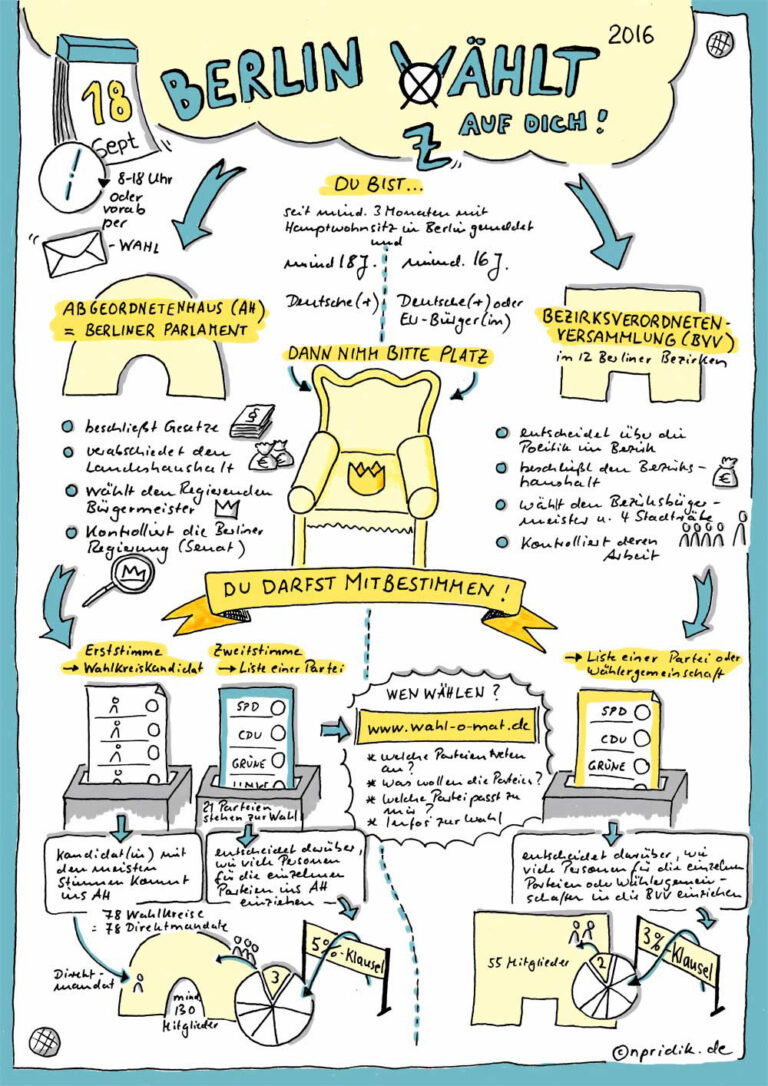 2016
BERLIN WÄHLT
AUF DICH!
18
Sept
8-18 Uhr
oder
vorab
per
-WAHL
DU BIST...
seit mind. 3 Monaten mit
Hauptwohnsitz in Berlin gemeldet
und
mind 18 J.
mind. 16 J.
Deutsche(r)
Deutsche(r) oder
EU-Bürger(in)
DANN NIMM BITTE PLATZ
ABGEORDNETENHAUS (AH)
= BERLINER PARLAMENT
beschließt Gesetze
§
verabschiedet den
Landeshaushalt
€ €
wählt den Regierenden
Bürgermeister
Kontrolliert die Berliner
Regierung (Senat)
BEZIRKSVERORDNETEN-
VERSAMMLUNG (BVV)
in 12 Berliner Bezirken
entscheidet über die
Politik im Bezirk
beschließt den Bezirks-
haushalt
€
wählt den Bezirksbürger-
meister u. 4 Stadträte
Kontrolliert deren
Arbeit
DU DARFST MITBESTIMMEN!
Erststimme
→ Wahlkreiskandidat
Zweitstimme
→ Liste einer Partei
SPD
CDU
GRÜNE
LINKE
21 Parteien
stehen zur Wahl
WEN WÄHLEN?
www.wahl-o-mat.de
* welche Parteien treten
an?
* was wollen die Parteien?
* welche Partei passt zu
mir?
* Infos zur Wahl
→ Liste einer Partei oder
Wählergemeinschaft
SPD
CDU
GRÜNE
Kandidat(in) mit
den meisten
Stimmen kommt
ins AH
78 Wahlkreise
= 78 Direktmandate
Direkt-
mandat
mind
130
Mitglieder
entscheidet darüber,
wie viele Personen
für die einzelnen
Parteien ins AH
einziehen
3
5%-Klausel
entscheidet darüber, wie
viele Personen für die einzelnen
Parteien oder Wählergemein-
schaften in die BVV einziehen
55 Mitglieder
2
3%-Klausel
©npridik.de